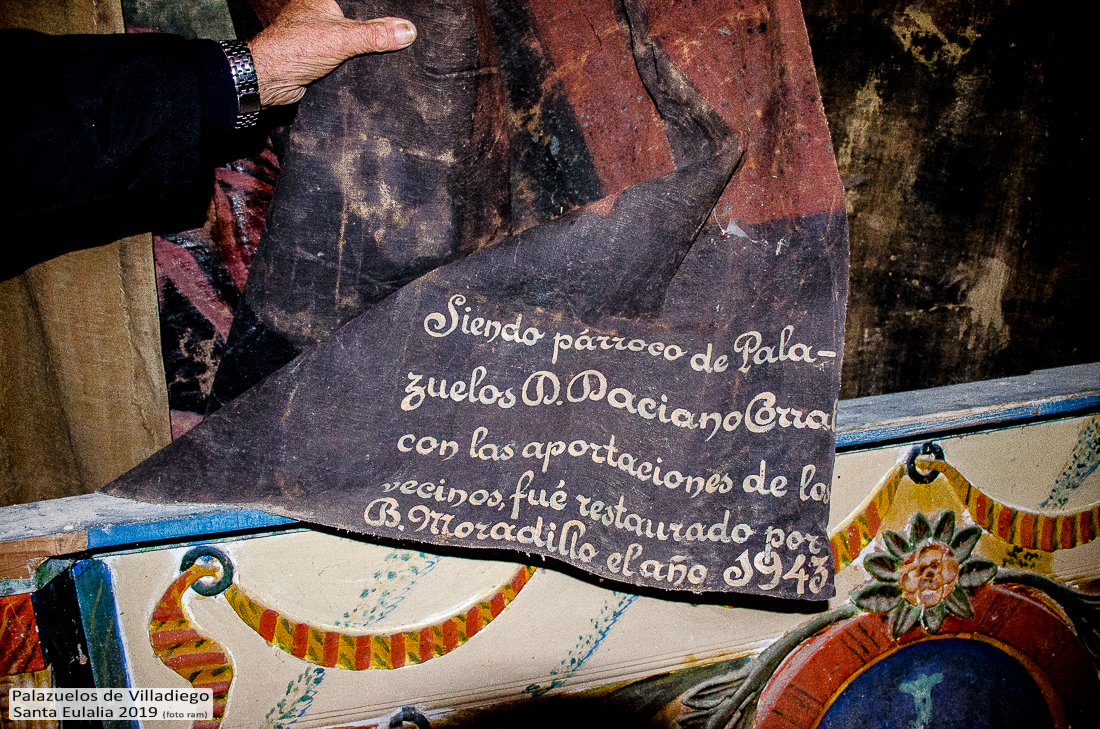 Siendo párroco de Pala-
zuelos D. Daciano Corral
con las aportaciones de los
vecinos, fué restaurado por
B. Moradillo el año 1943
Palazuelos de Villadiego
Santa Eulalia 2019 (foto ram)